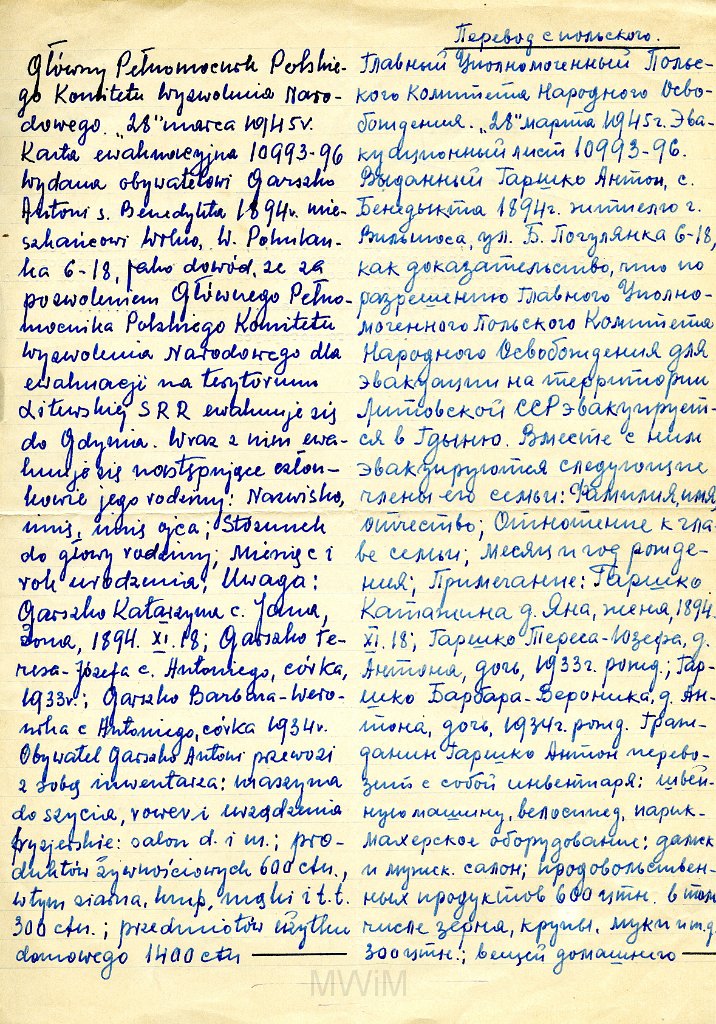 Перевод с польского.
Główny Pełnomocnik Polskie-
go Komitetu Wyzwolenia Naro-
dowego. „28" marca 1945 r.
Karta ewakuacyjna 10993-96
wydana obywatelowi Garszko
Antoni s. Benedykta 1894 r. mie-
szkańcowi Wilno, W. Pohulan-
ka 6-18, jako dowód, że za
pozwoleniem Głównego Pełno-
mocnika Polskiego Komitetu
Wyzwolenia Narodowego dla
ewakuacji na terytorium
Litewskiej SRR ewakuuje się
do Gdynia. Wraz z nim ewa-
kuuje się następujące człon-
kowie jego rodziny: Nazwisko,
imię, imię ojca; Stosunek
do głowy rodziny; Miesiąc i
rok urodzenia; Uwaga:
Garszko Katarzyna c. Jana,
żona, 1894. XI.18; Garszko Te-
resa-Józefa c. Antoniego, córka,
1933 r.; Garszko Barbara-Wero-
nika c Antoniego, córka 1934 r.
Obywatel Garszko Antoni przewozi
z sobą inwentarza: maszyna
do szycia, rower i urządzenia
fryzjerskie: salon d. i m.; pro-
duktów żywnościowych 600 ctn.,
w tym ziarna, krup, mąki i t.t.
300 ctn.; przedmiotów użytku
domowego 1400 ctn
Главный Уполномоченный Поль-
ского Комитета Народного Осво-
бождения. „28" марта 1945 г. Эва-
куационный лист 10993-96.
Выданный Гаршко Антон, с.
Бенедыкта 1894 г. жителю г.
Вильнюса, ул. Б. Погулянка 6-18,
как доказательство, что по
разрешению Главного Уполно-
моченного Польского Комитета
Народного Освобождения для
эвакуации на территории
Литовской ССР эвакуирует-
ся в Гдыню. Вместе с ним
эвакуируются следующие
члены его семьи: Фамилия, имя,
отчество; Отношение к гла-
ве семьи; Месяц и год рожде-
ния; Примечание: Гаршко
Катажина д. Яна, жена, 1894.
XI.18; Гаршко Тереса-Юзефа, д.
Антона, дочь, 1933 г. рожд.; Гар-
шко Барбара-Вероника, д. Ан-
тона, дочь, 1934 г. рожд. Граж-
данин Гаршко Антон перево-
зит с собой инвентаря: швей-
ную машину, велосипед, парик-
махерское оборудование: дамск
и мужск. салон; продовольствен-
ных продуктов 600 цтн. в том
числе зерна, крупы, муки и т.д.
300 цтн.; вещей домашнего
MWiM